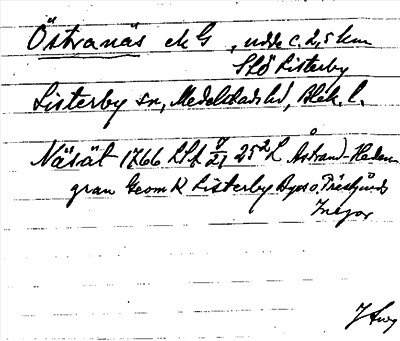 Östranäs ek G, udde c. 2,5 km
SSÖ Listerby
Listerby sn, Medelstads hd, Blek. l.
Näsät 1766 LSA 25² L Åstrand-Heden-
gran Geom K Listerby Byes o. Prästgårds
Inegor